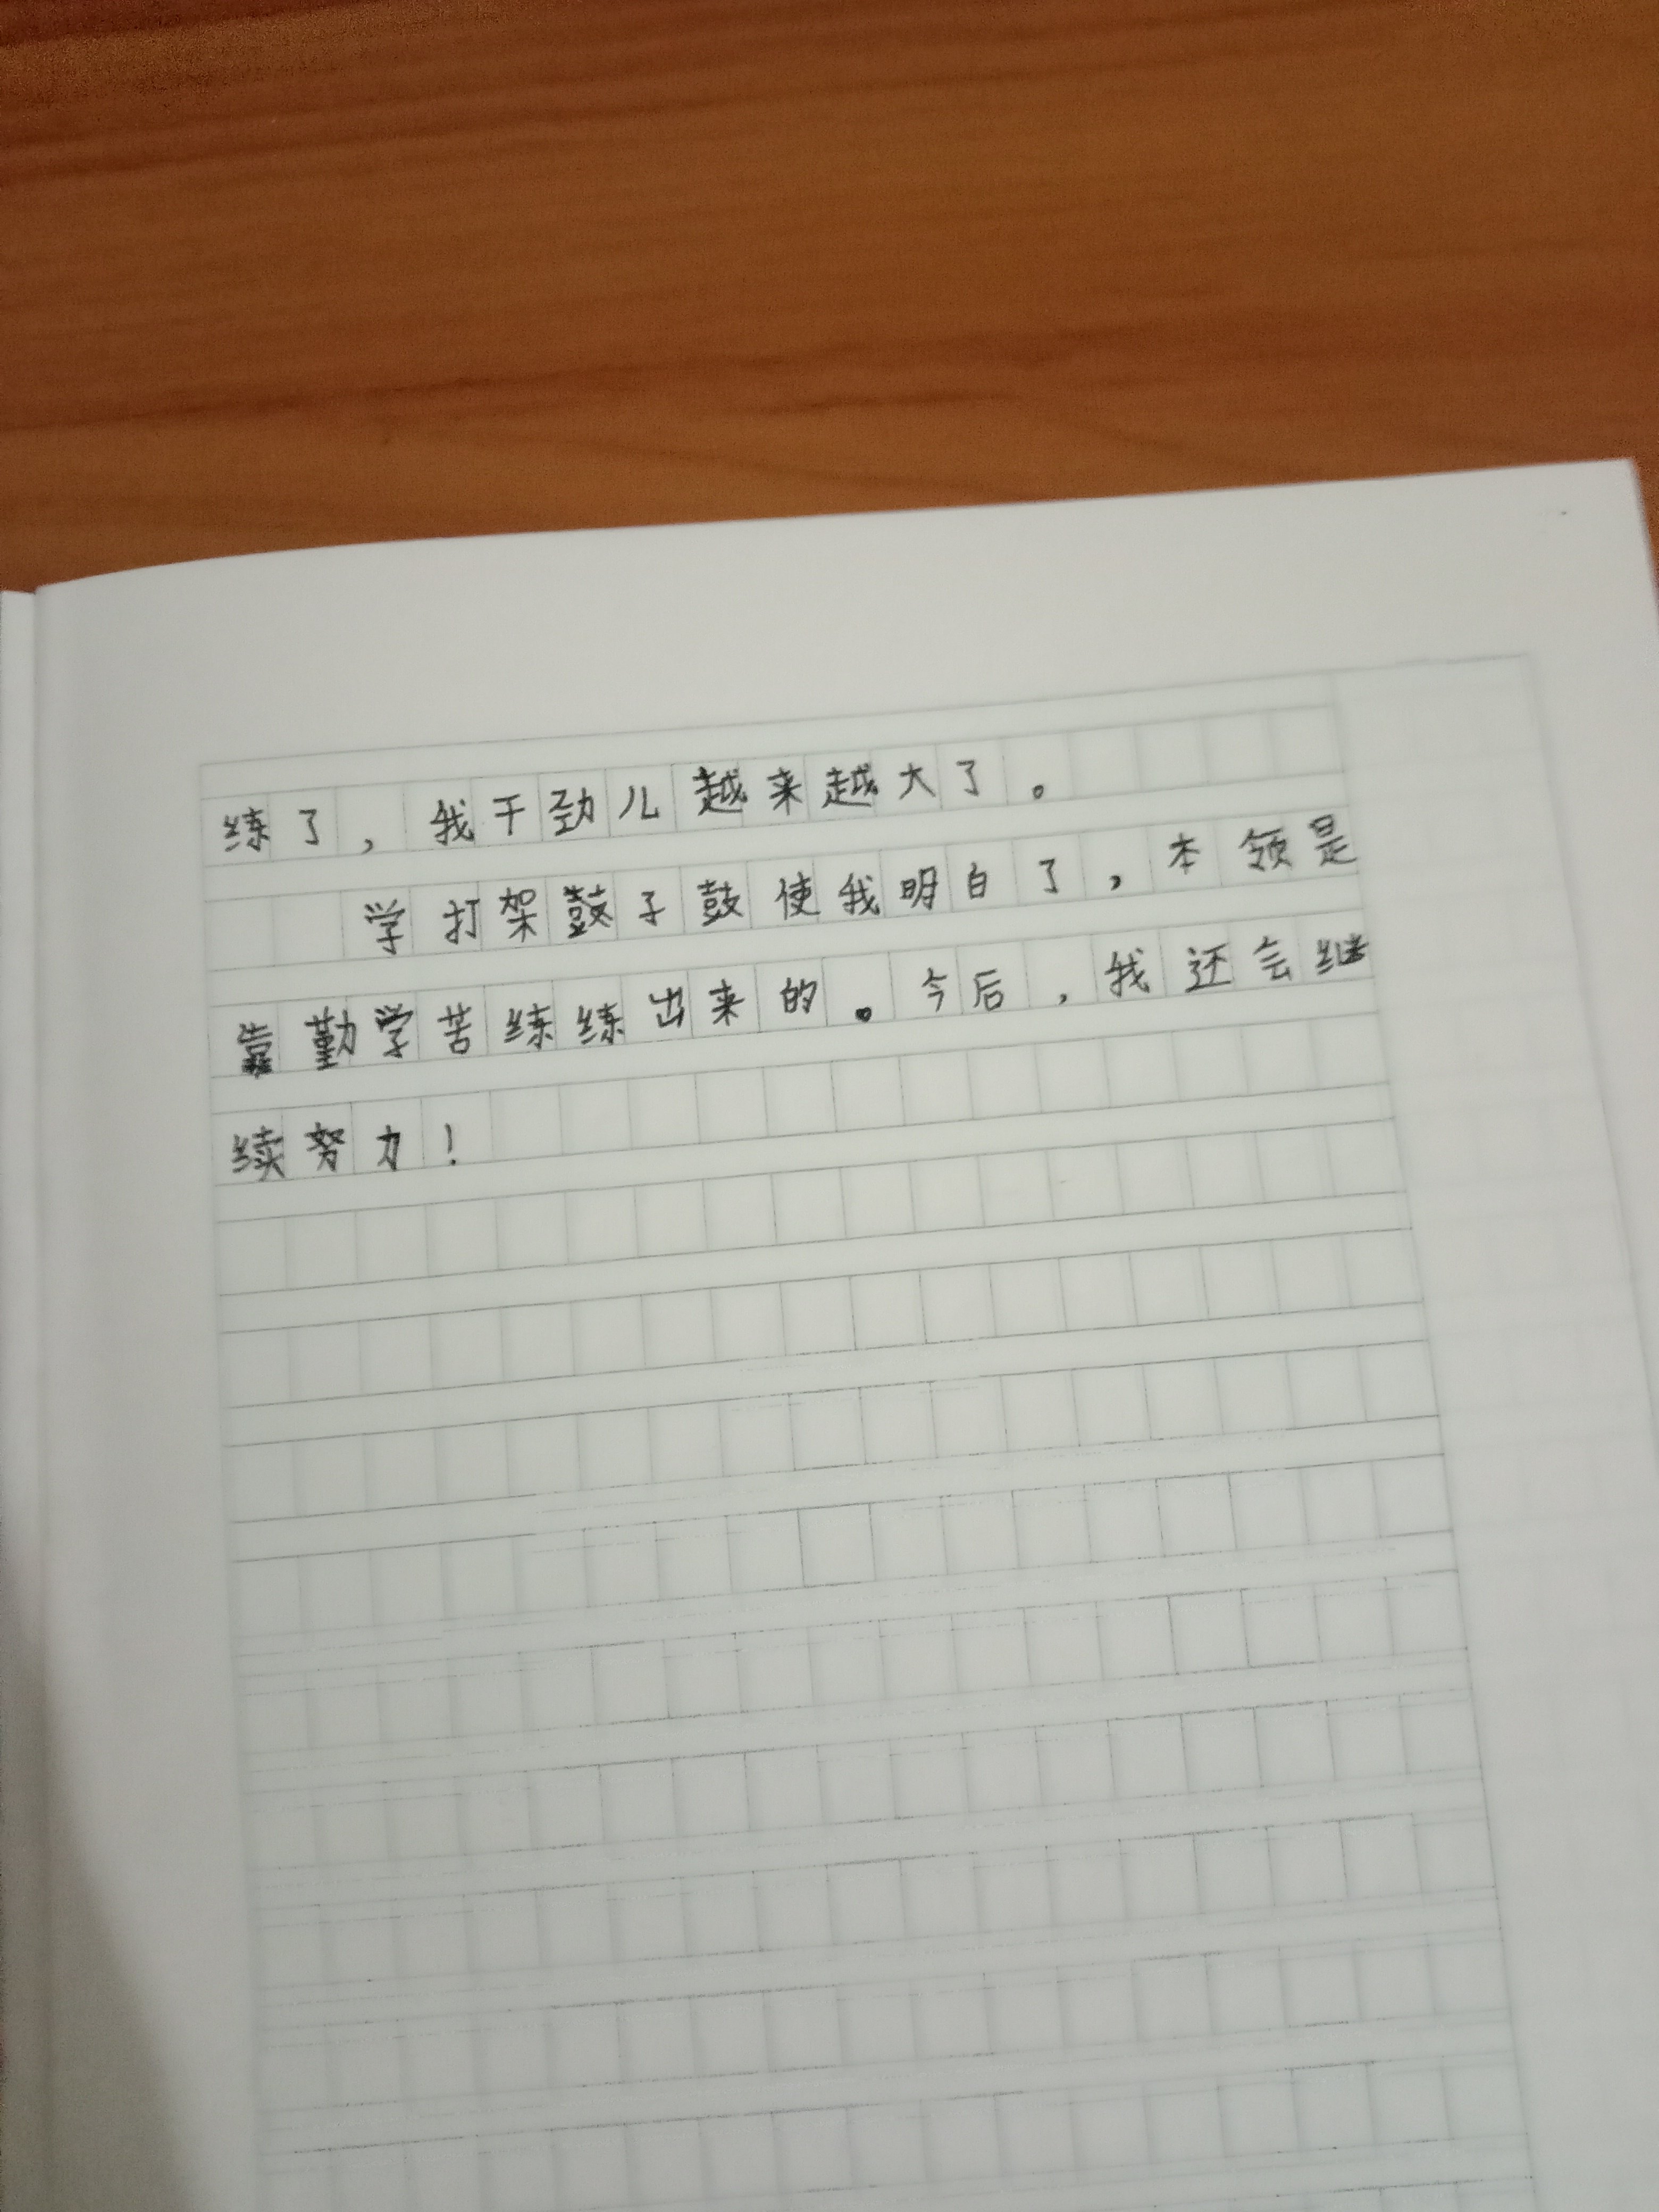 练了，我干劲儿越来越大了。
学打架鼓子鼓使我明白了，本领是
靠勤学苦练练出来的。今后，我还会继
续努力！